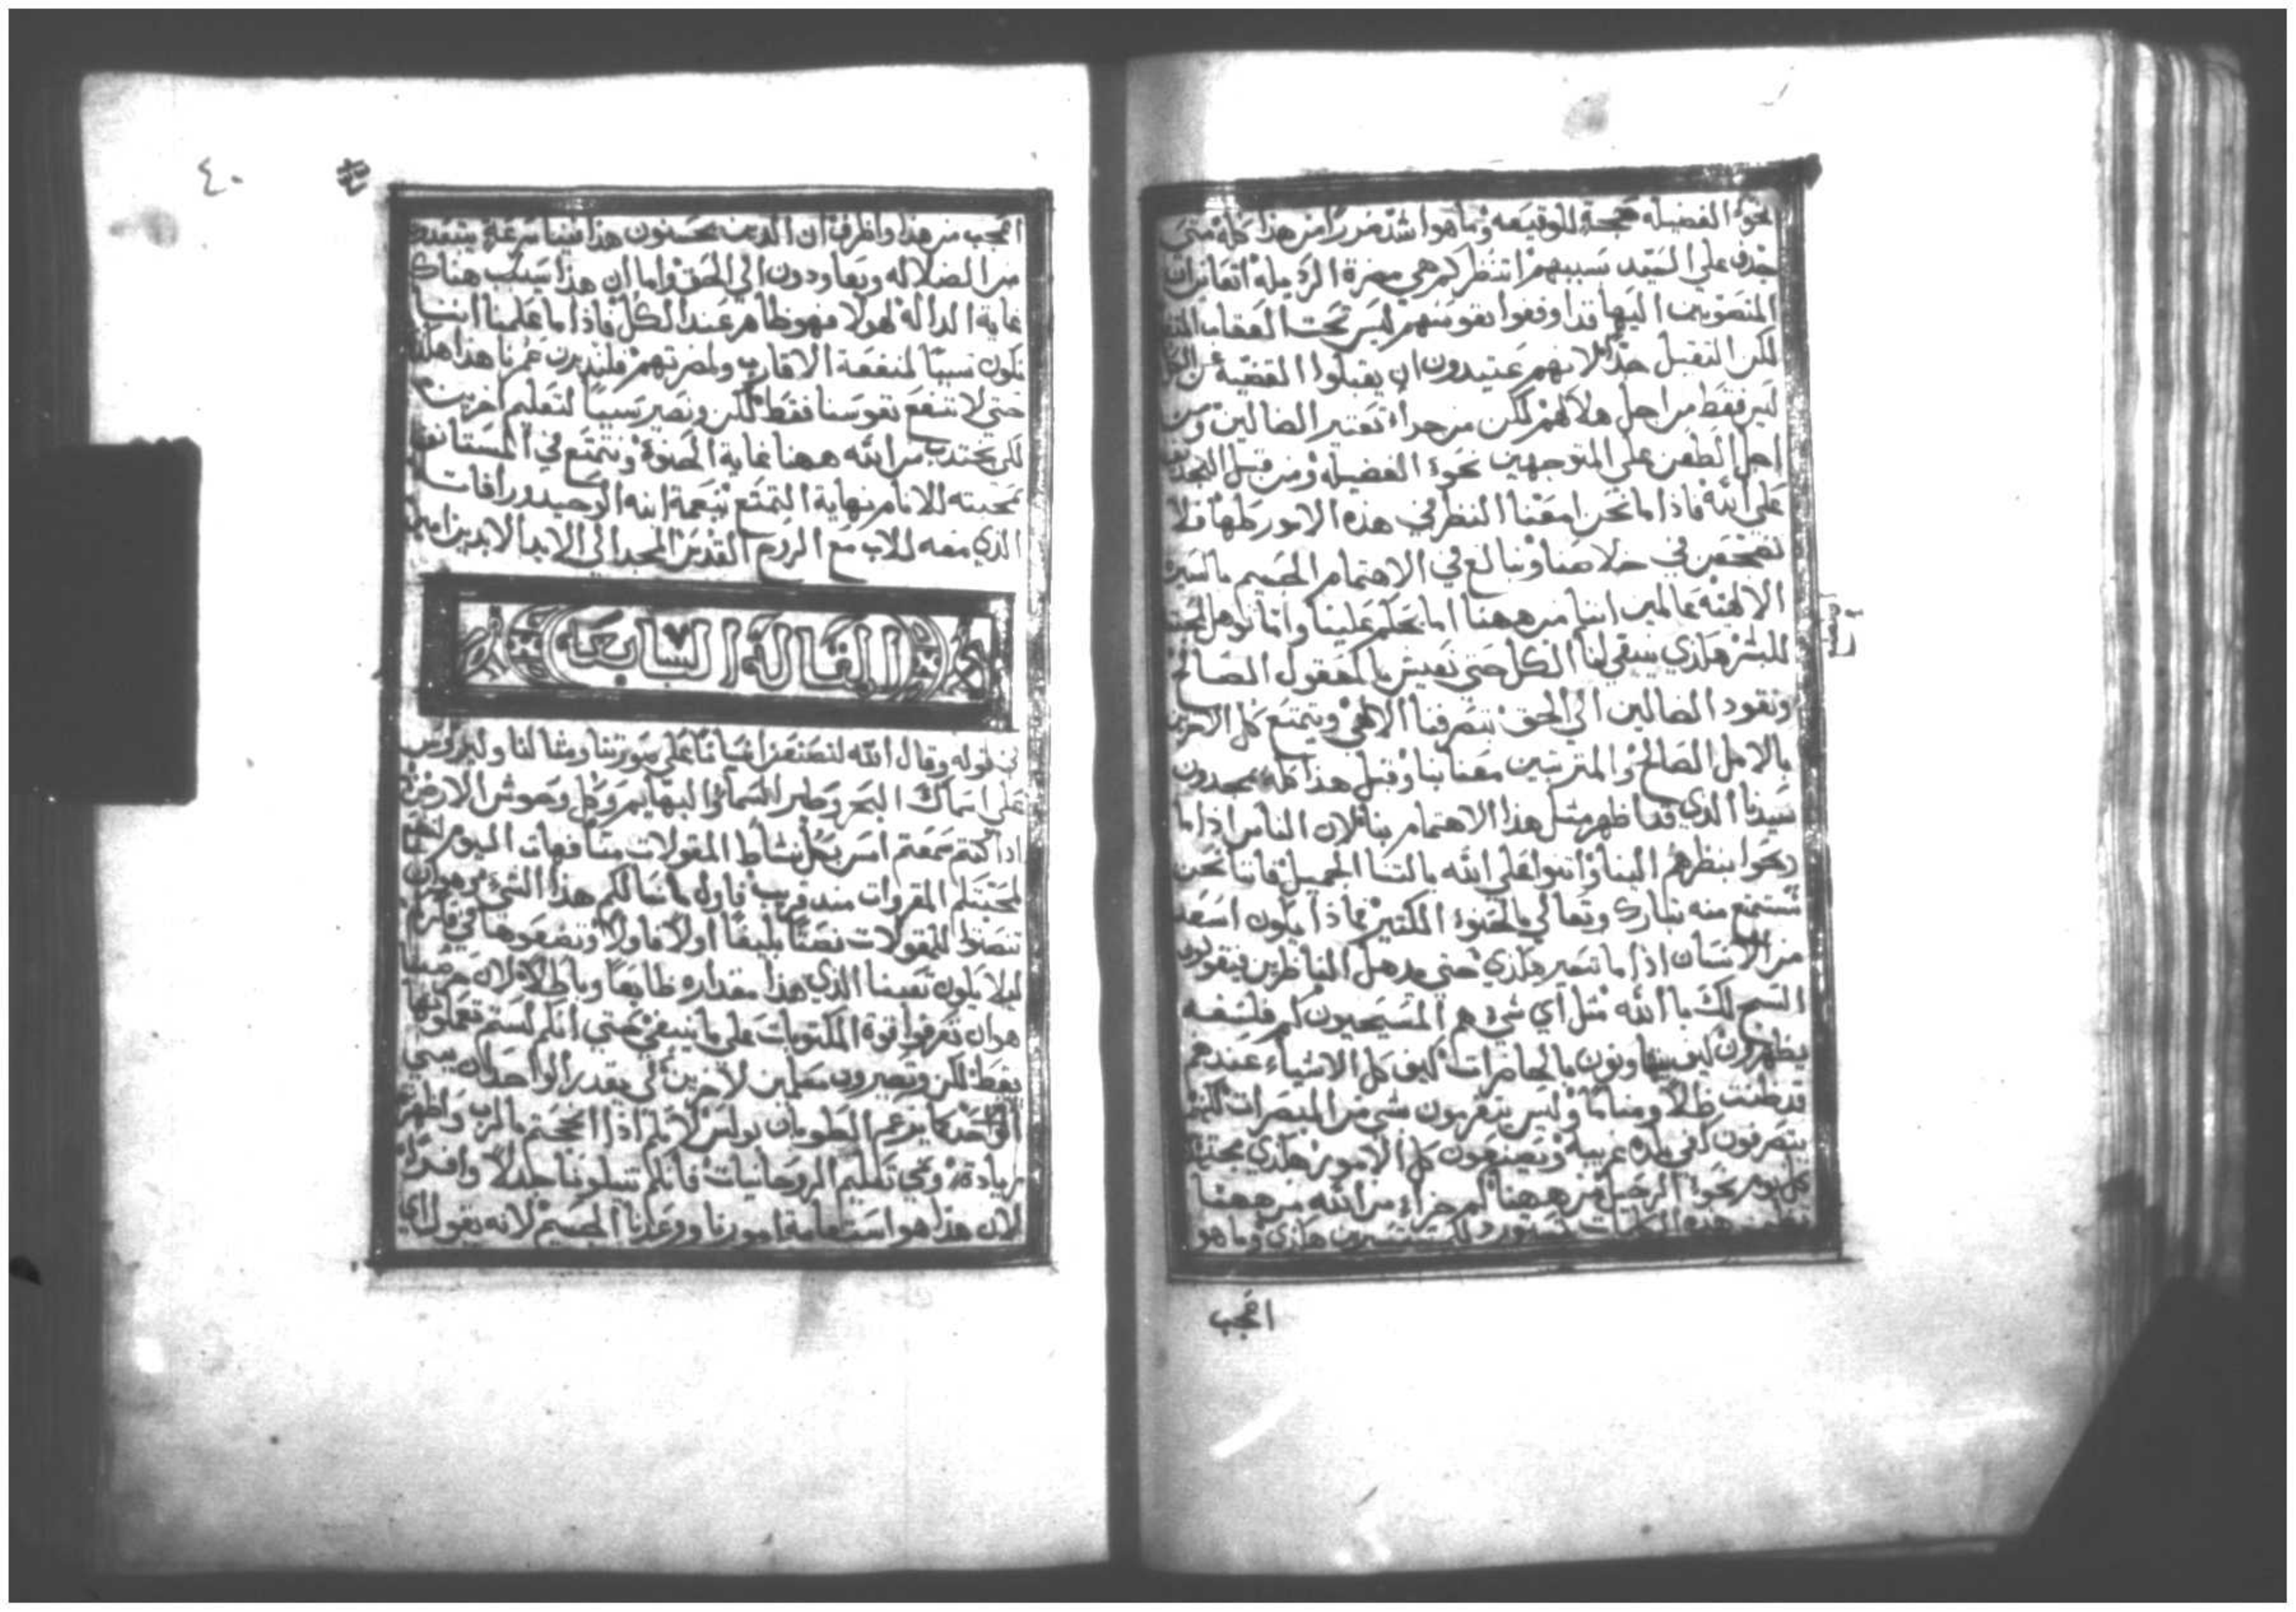 نحو الفضيله حجة للوقيعه وما هوا اشد ضررا من هذا كله متى
جدف على السيد بسببهم اتنظر كم هي مضرة الرذيله اتعاين ان
المنصوبين اليها قد اوقعوا نفوسهم ليس تحت العقاب
لكن الثقيل جدا لانهم عتيدون ان يقبلوا القضية عن الكل
ليس فقط من اجل هلاكهم لكن من جراء تعثير الضالين ومن
اجل الطعن على المتوجهين نحو الفضيله ومن قبل التجديف
على الله فاذا ما نحن امعنا النظر في هذه الامور كلها فلا
نضجعن في خلاصنا ونبالغ في الاهتمام الجسيم بالسيرة
الالهيه عالمين اننا من ههنا اما يحكم علينا واما نوهل لمحبته
للبشر هكذي ينبغي لنا الكل حتى نعيش بالمعقول الصالح
ونقود الضالين الى الحق بتصرفنا الالهي ويتمتع كل الاخرين
بالامل الصالح والمقتربين معنا بنا وقبل هذا كله يمجدون
سيدنا الذي قد اظهر مثل هذا الاهتمام بنا لان الناس اذا ما
رمحوا بنظرهم الينا واثنوا على الله بالثنا الجميل فاننا نحن
نستمتع منه تبارك وتعالى بالحنوة الكثير فماذا يكون اسعد
من الانسان اذا ما تصير هكذي حتى يدهل الناظرين فيقولون
السبح لك يا الله مثل اي شي هم المسيحيون كم فلسفه
يظهرون كيف يتهاونون بالحاضرات كيف كل الاشياء عندهم
قد ظنت ظلا ومناما وليس يتقربون بشي من المبصرات لكنهم
يتصرفون كفي بلده غريبة ويصنعون كل الامور هكذي مجتهدين
كل يوم نحو الرحيل من ههنا كم جزاء من الله من ههنا
هذه الكلمات هكذي وما هو
اعجب
٤٠
اعجب من هذا واظرف ان الذين يحسنون هذا فينا سرعة يبتعدوا
من الضلاله ويعاودون الى الحق واما ان هذا يسبب هناك
غاية الداله لهولا فهو ظاهر عند الكل فاذا ما علمنا اننا
نكون سببا لمنفعة الاقارب ولمضرتهم فلندبرن عمرنا هذا هكذي
حتى لا ننفع نفوسنا فقط لكن ونصير سببا لتعليم اخرين
لكي نجتذب من الله ههنا غاية الحنوة ونتمتع في المستانف
بمحبته للانام نهاية التمتع بنعمة ابنه الوحيد ورافات
الذي معه للاب مع الروح القدس المجد الى الابد الابدين امين
المقالة السابعة
في قوله وقال الله لنصنعن انسانا على صورتنا ومثالنا وليروس
على اسماك البحر وطير السماء والبهايم وكل وحوش الارض
اذا كنتم سمعتم امس بكل نشاط المقولات منا فهات اليوم لكيما
لمحبتكم المقروات منذ قريب فاول ما نسالكم هذا الشي وهو ان
تنصتوا للمقولات نصتا بليغا اولا فاولا وتضعوها في فكركم
ليلا يكون تعبنا الذي هذا مقداره ضايعا وباطلا لان حرصنا
هو ان تعرفوا قوة المكتوبات على ما ينبغي حتى انكم لستم تعملونها
فقط لكن وتصيرون معلمين لاخرين لكي يقدر الواحد ان يبني
الواحد كما يزعم الطوبان بولس لانكم اذا انجحتم بالرب واظهرتم
زيادة وفي تعليم الروحانيات فانكم تنيلوننا جذلا وافرا
لان هذا هو استقامة امورنا ووعدنا الجسيم لانه يقول اي